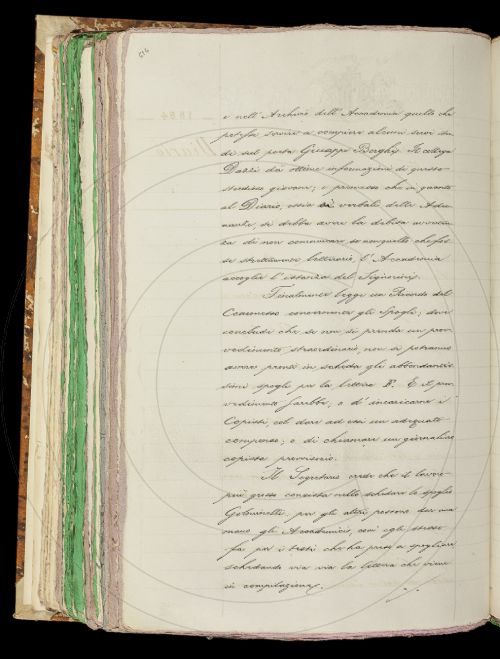 614
e nell' Archivio dell' Accademia quello che
potesse servire a compiere alcuni suoi stu
di sul poeta Giuseppe Borghi. Il collega
Dazzi dà ottime informazioni di questo
studioso giovane; e premesso che in quanto
al Diario, ossia ai verbali delle Adu
nanze, si debba avere la debita avverten
za di non comunicare se non quello che fos
se strettamente letterario, l' Accademia
accoglie l' istanza del Signorini.
Finalmente legge un Ricordo del
Cesareo concernente gli Spogli; dove
conclude che se non si prenda un prov
vedimento straordinario, non si potranno
avere pronti in scheda gli abbondantis
simi spogli per la lettera F. E il prov
vedimento sarebbe, o d' incaricarne i
Copisti, col dare ad essi un adeguato
compenso; o di chiamare un giornaliero
copista provvisorio.
Il Segretario crede che il lavoro
più grosso consista nello schedare lo spoglio
per gli altri possono dar una
mano gli Accademici, com' egli stesso
fa per i testi che ha preso a spogliare
schedando via via la lettera che viene
in compilazione.